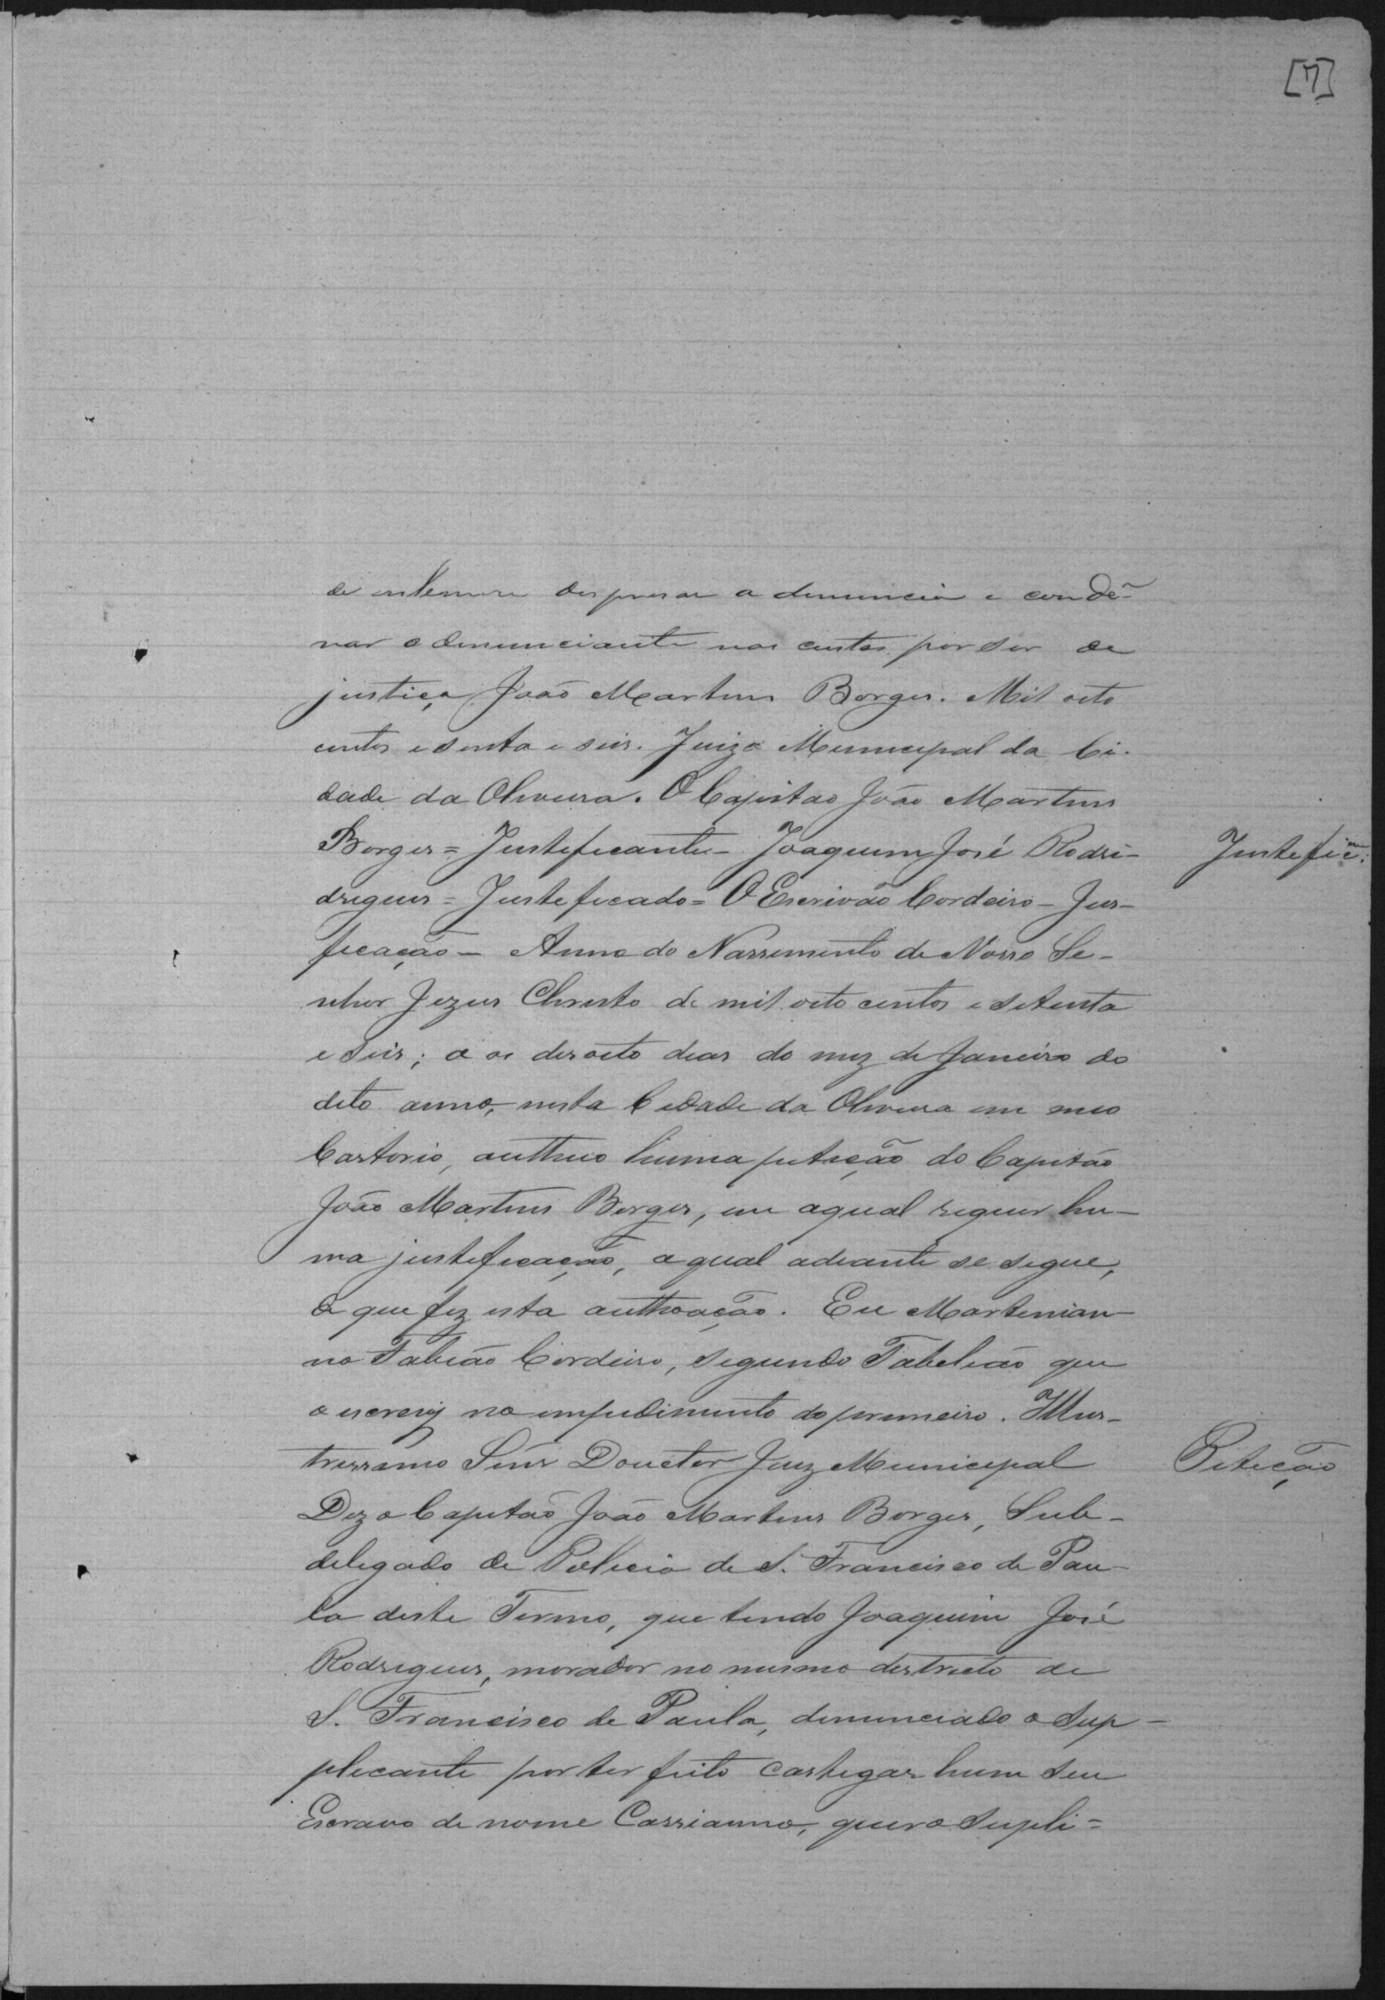 [7]
de despresar a denuncia e conde-
nar o denunciante nas custas por ser de
justiça João Martins Borges. Mil oito
centos e senta e seis. Juizo Municipal da Ci-
dade da Oliveira. O Capitão João Martins
Borges = Justeficante - Joaquim José Rodri-
Justefic.am
drigues = Justeficado = O Escrivão Cordeiro - Jus-
ficação - Anno do Nassimento de Nosso Se-
nhor Jezus Christo de mil oito centos e setenta
e seis; a os desoito dias do mez de Janeiro do
dito anno, nesta Cidade da Oliveira em meo
Cartorio, authuo huma petição do Capitão
João Martins Borges, em a qual requer hu-
ma justeficação, a qual adeante se segue,
o que fiz esta authoação. Eu Martenian-
no Fabião Cordeiro, segundo Tabelião que
o escrevy no empedimento do primeiro. Illus-
trissimo Senr Douctor Juiz Municipal
Peteção
Diz o Capitão João Martins Borges, Sub-
delegado de Policia de S. Francisco de Pau-
la deste Termo, que tendo Joaquim José
Rodrigues, morador no mesmo destricto de
S. Francisco de Paula, denunciado o Sup-
plecante por ter feito castigar hum seu
Escravo de nome Cassianno, quer o Supli=